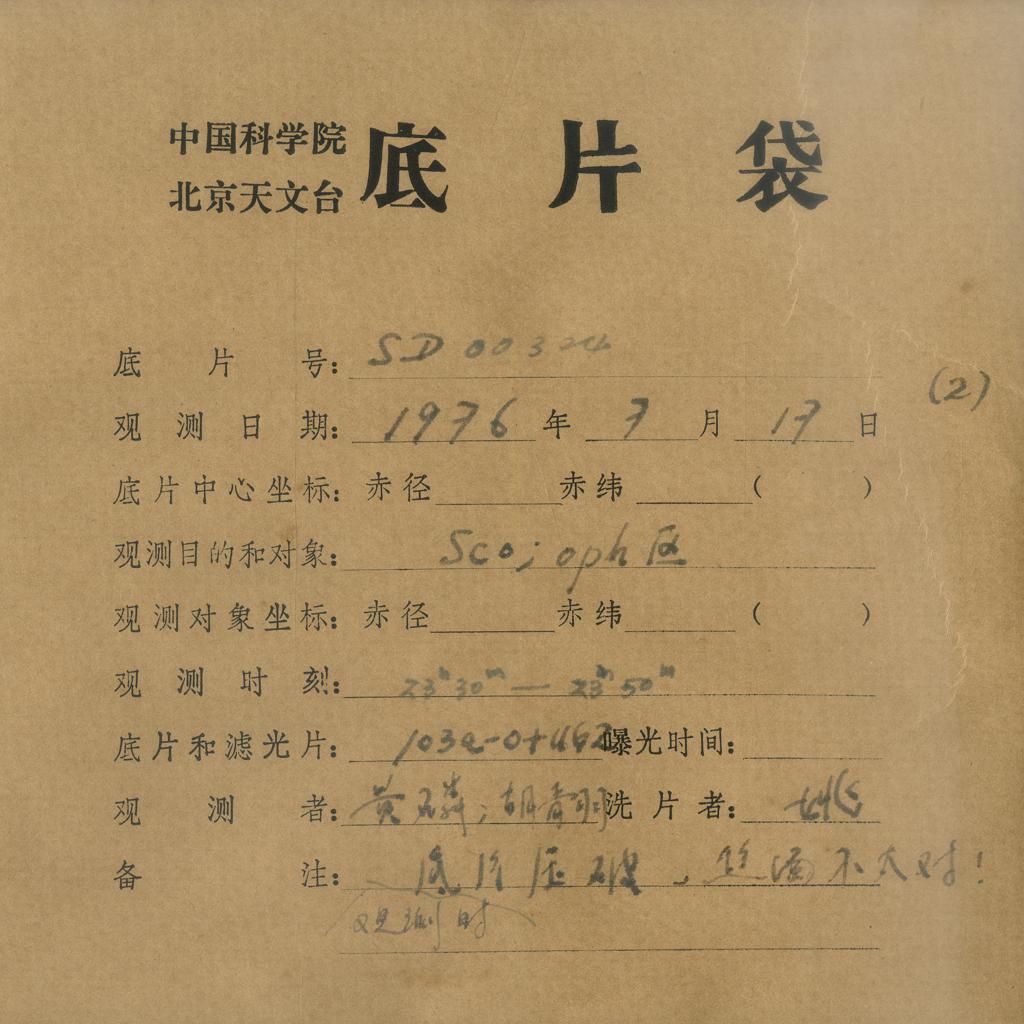 中国科学院
北京天文台 底片袋
底片号: SD 00324
(2)
观测日期: 1976 年 7 月 17 日
底片中心坐标: 赤径 赤纬 ( )
观测目的和对象: Sco; oph 区
观测对象坐标: 赤径 赤纬 ( )
观测时刻: 23h30m — 23h50m
底片和滤光片: 103a-O+ 曝光时间:
观测者: 黄磷; 胡青 洗片者: 姚
备注: 底片压破、 不大对!
观测时